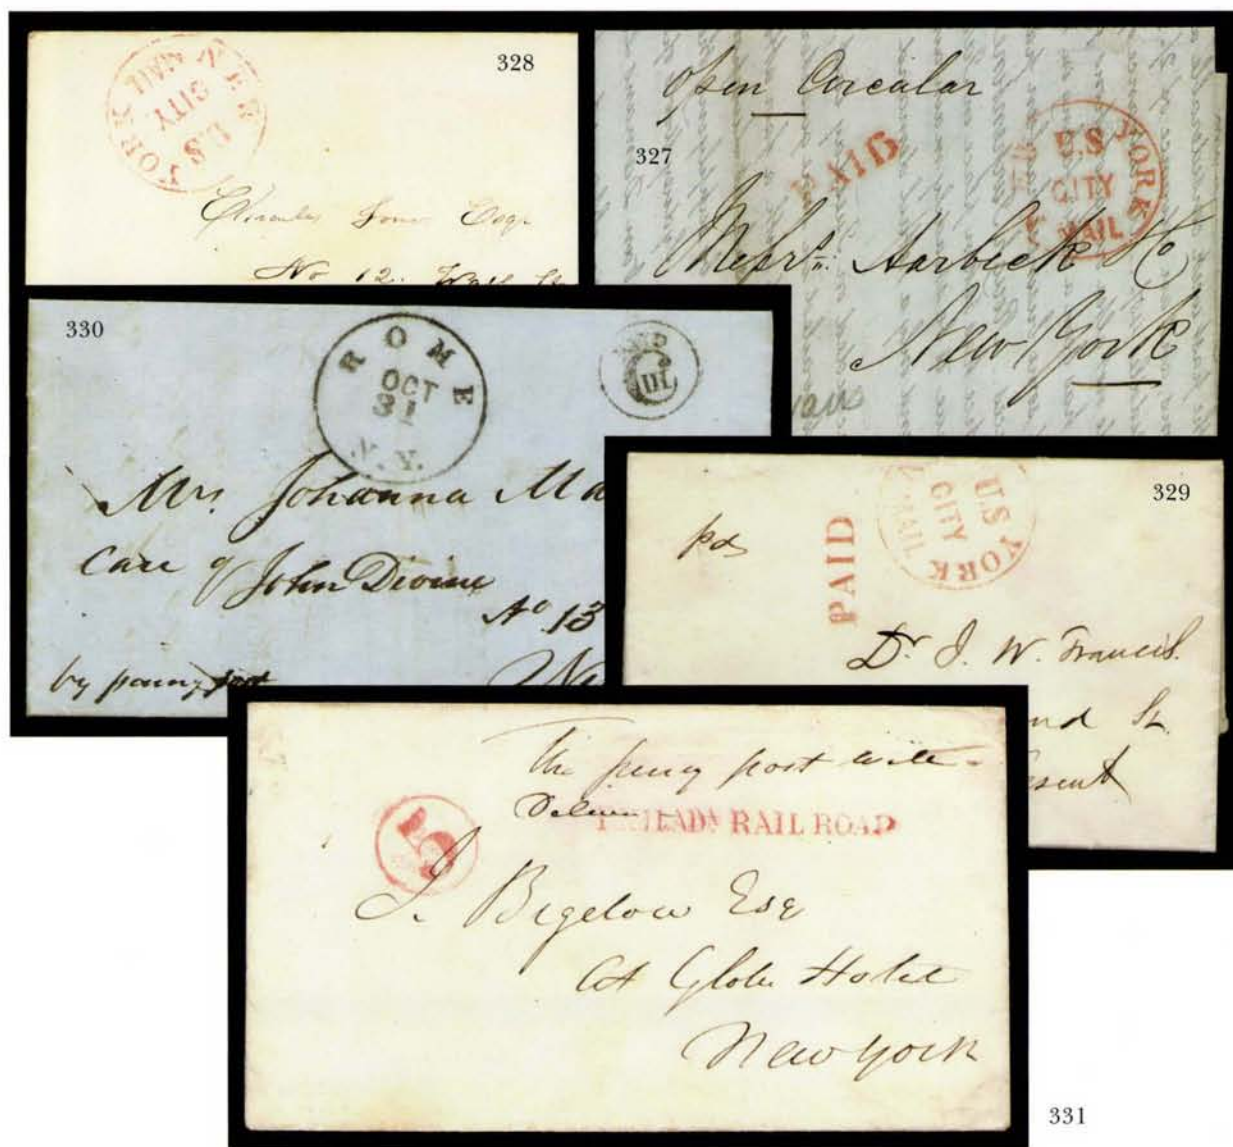 328
NEW YORK
U.S
CITY
MAIL
Esqr
No 12. Wall St
327
open Circular
PAID
YORK
U.S
CITY
MAIL
Messrs. Harbeck & Co
New York
330
ROME
OCT
31
N.Y.
Mrs. Johanna Ma
Care of John Divine
No 13
by penny post
329
pd
PAID
YORK
U.S
CITY
MAIL
Dr J. W. Francis.
nd St
esent
The penny post will
5
PHILADA RAIL ROAD
J. Bigelow Esq
At Globe Hotel
New York
331